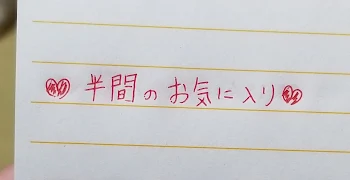 ♥♥ 半間のお気に入り ♥♥